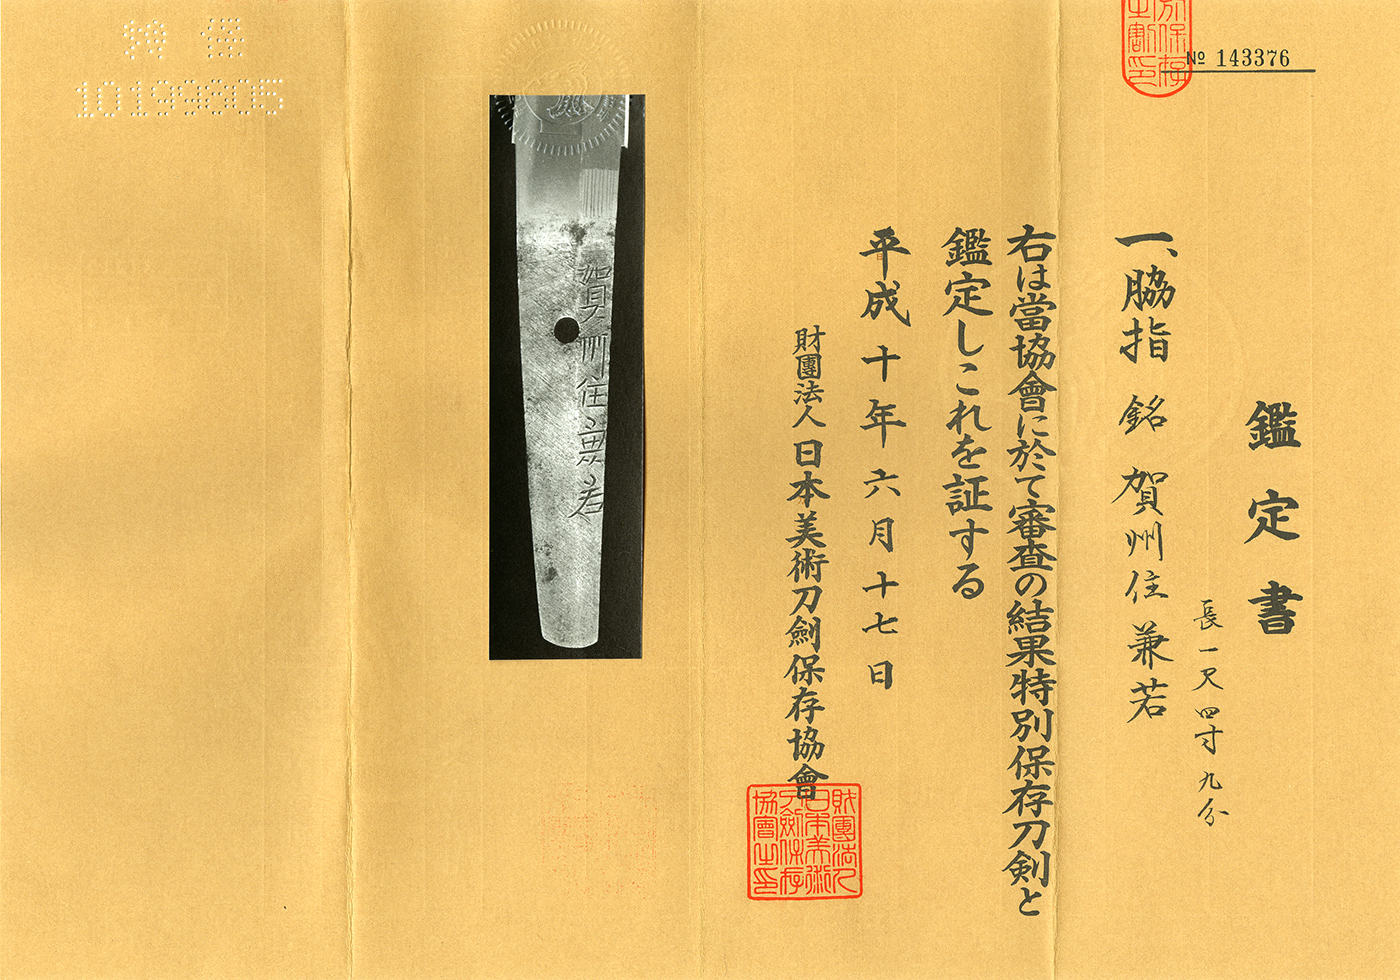 № 143376
鑑定書
一、脇指 銘 賀州住兼若
長一尺四寸九分
右は當協會に於て審査の結果特別保存刀剣と
鑑定しこれを証する
平成十年六月十七日
財團法人日本美術刀劍保存協會
財團法人
日本美術
刀劍保存
協會之印
賀州住兼若
特保
10199805